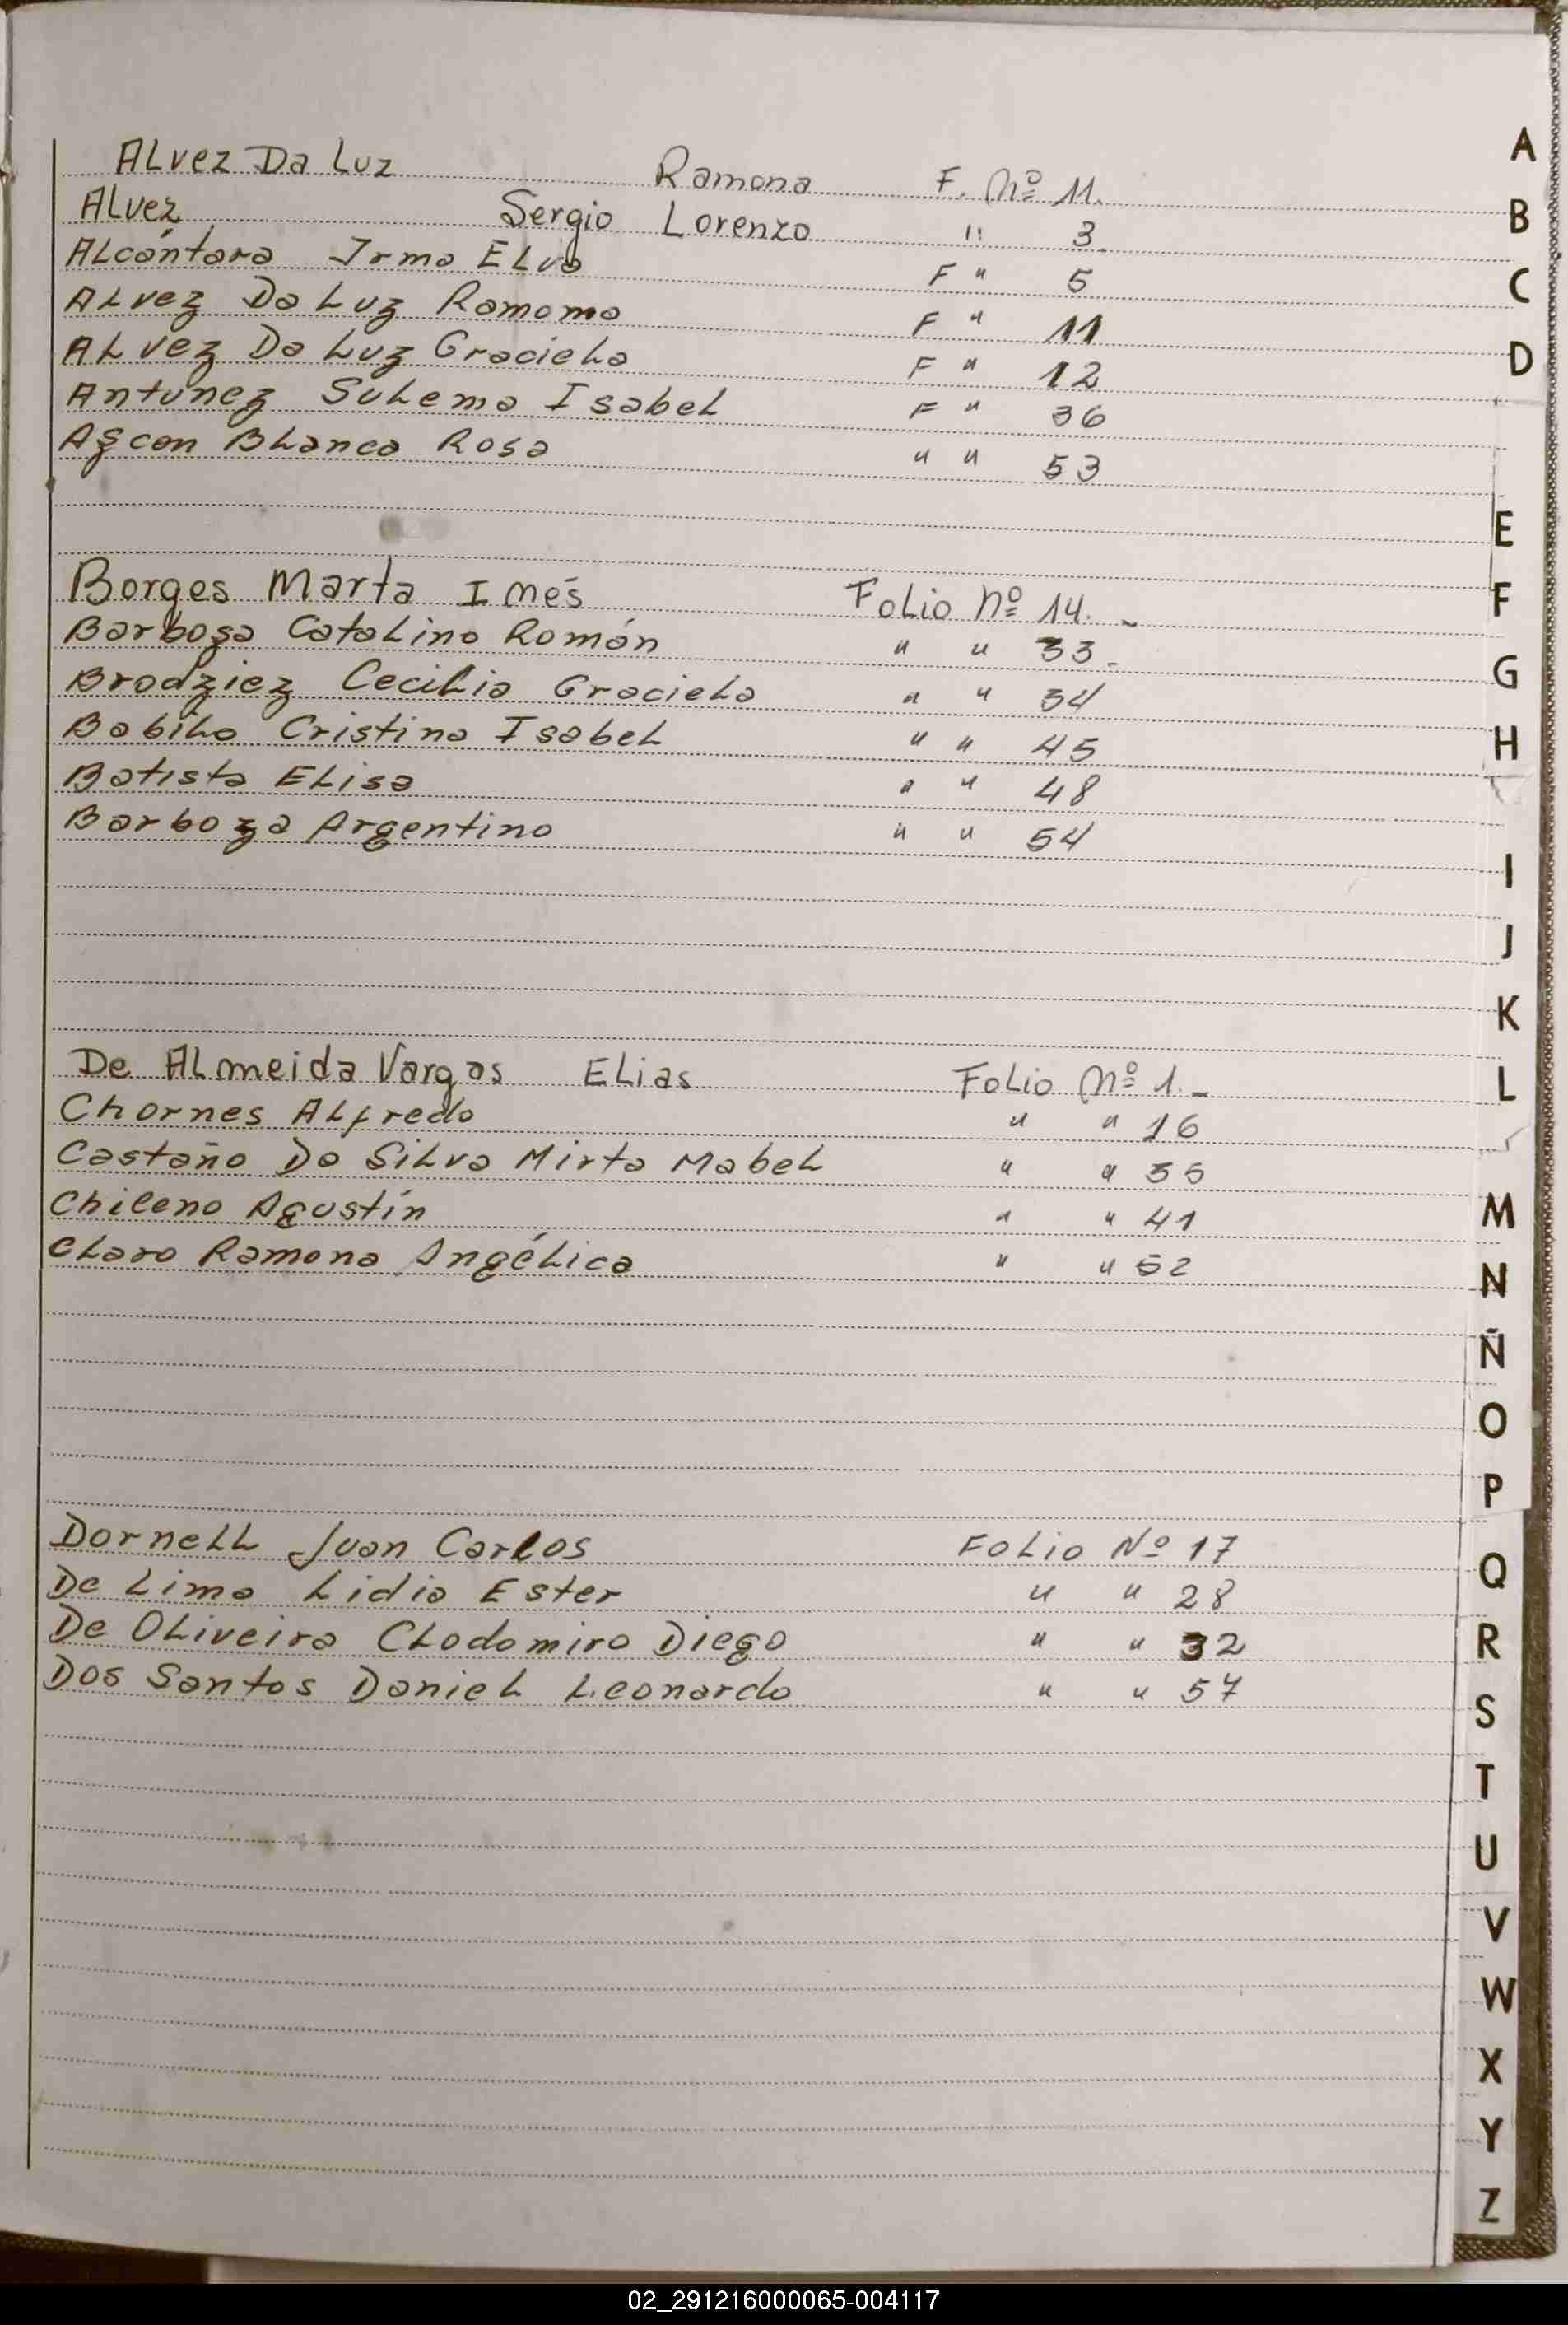 Alvez Da Luz Ramona F. Nº 11.
Alvez Sergio Lorenzo " 3.
Alcántara Irma Elva F " 5
Alvez Da Luz Ramona F " 11
Alvez Da Luz Graciela F " 12
Antunez Sulema Isabel F " 36
Azcon Blanca Rosa " " 53
Borges Marta Inés Folio Nº 14. -
Barboza Catalino Román " " 33 -
Brodziez Cecilia Graciela " " 34
Babilo Cristina Isabel " " 45
Batista Elisa " " 48
Barboza Argentino " " 54
De Almeida Vargas Elias Folio Nº 1. -
Chornes Alfredo " " 16
Castaño Da Silva Mirta Mabel " " 35
Chileno Agustín " " 41
Claro Ramona Angélica " " 52
Dornell Juan Carlos Folio Nº 17
De Lima Lidia Ester " " 28
De Oliveira Clodomiro Diego " " 32
Dos Santos Daniel Leonardo " " 57
A
B
C
D
E
F
G
H
I
J
K
L
M
N
Ñ
O
P
Q
R
S
T
U
V
W
X
Y
Z
02_291216000065-004117